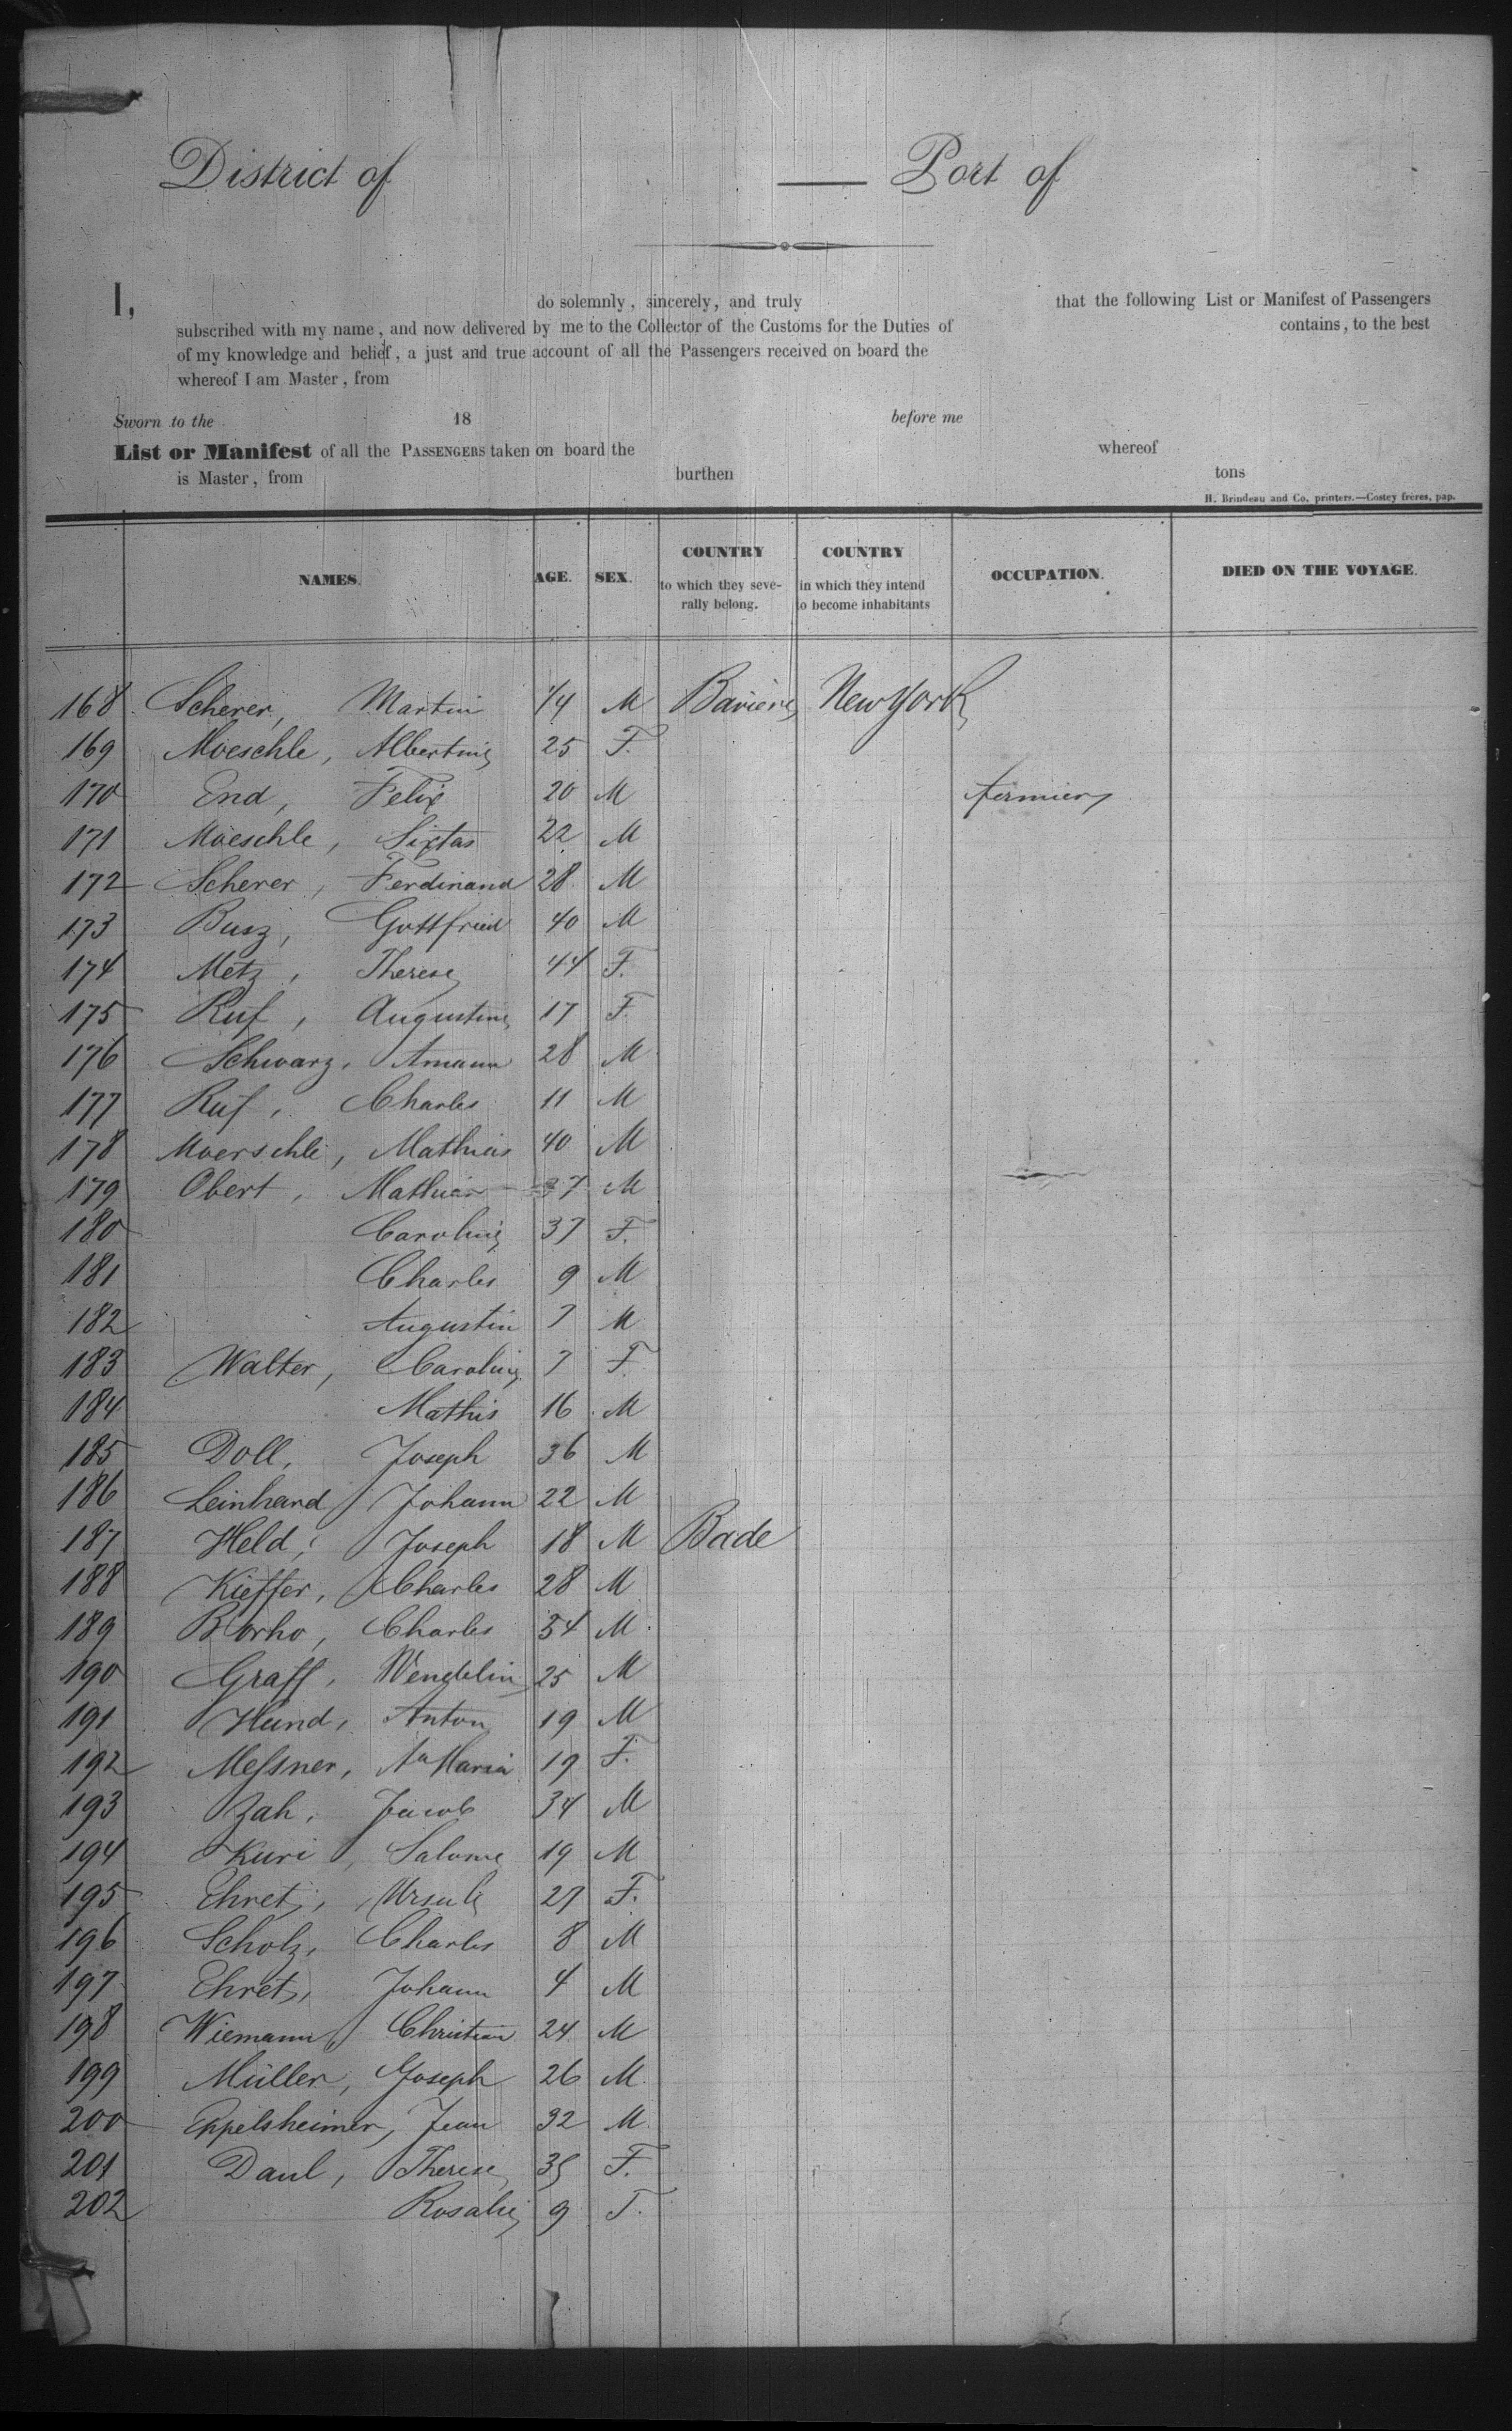 District of — Port of
I, do solemnly, sincerely, and truly that the following List or Manifest of Passengers
subscribed with my name, and now delivered by me to the Collector of the Customs for the Duties of contains, to the best
of my knowledge and belief, a just and true account of all the Passengers received on board the
whereof I am Master, from
Sworn to the 18 before me
List or Manifest of all the PASSENGERS taken on board the whereof
is Master, from burthen tons
H. Brindeau and Co, printers.—Costey frères, pap.
NAMES. AGE. SEX. COUNTRY to which they severally belong. COUNTRY in which they intend to become inhabitants OCCUPATION. DIED ON THE VOYAGE.
168 Scherer, Martin M Baviere New York
169 Moeschle, Albertine 25 F.
170 End, Felix 20 M fermier
171 Moeschle, Sixtus 22 M
172 Scherer, Ferdinand 28 M
173 Busz, Gottfried 40 M
174 Metz, Therese 44 F.
175 Ruf, Augustine 17 F.
176 Schwarz, Amann 28 M
177 Ruf, Charles 11 M
178 Moerschle, Mathias 40 M
179 Obert, Mathias 37 M
180 Caroline 37 F.
181 Charles 9 M
182 Augustin 7 M
183 Walter, Caroline 7 F.
184 Mathis 16 M
185 Doll, Joseph 36 M
186 Leinhard, Johann 22 M
187 Held, Joseph 18 M Bade
188 Kieffer, Charles 28 M
189 Borho, Charles 54 M
190 Graff, Wendelin 25 M
191 Hund, Anton 19 M
192 Messner, Aa Maria 19 F.
193 Zah, Jacob 34 M
194 Kuri, Salome 19 M
195 Ehret, Ursule 27 F.
196 Scholz, Charles 8 M
197 Ehret, Johann 4 M
198 Wiemann, Christian 24 M
199 Müller, Joseph 26 M
200 Eppelsheimer, Jean 32 M
201 Daul, Therese 35 F.
202 Rosalie 9 F.